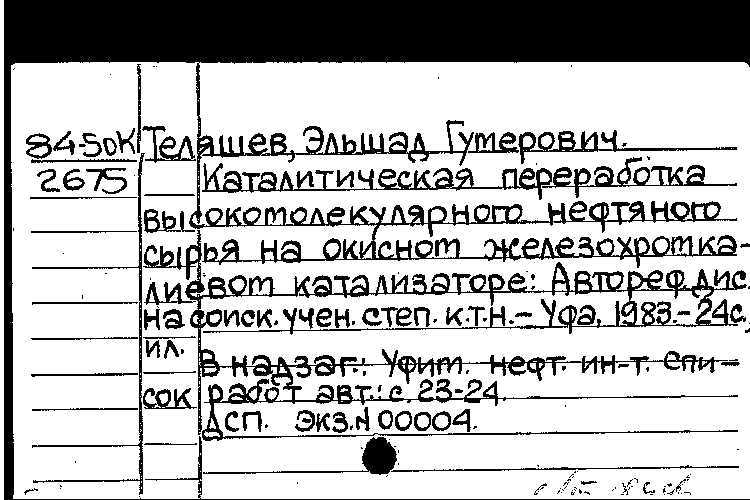 84-5ок Теляшев, Эльшад Гумерович.
2675 Каталитическая переработка
высокомолекулярного нефтяного
сырья на окисном железохромка-
лиевом катализаторе: Автореф.дис.
на соиск.учен.степ.к.т.н.-Уфа, 1983.-24с,
ил.
В надзаг.: Уфим. нефт. ин-т. Спи-
сок работ авт.: с.23-24.
ДСП. Экз.N 00004.